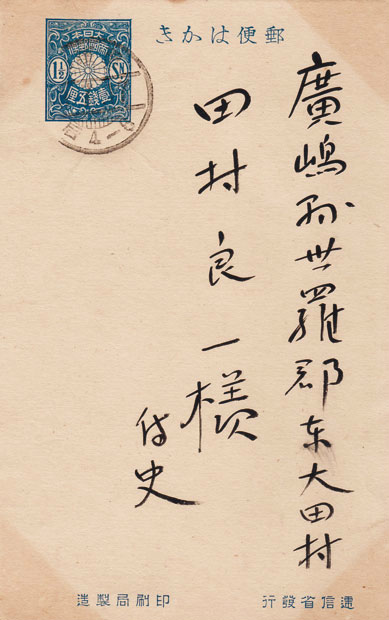 郵便はかき
大日本
帝國郵便
1½ Sn
壹錢五厘
廣嶋縣世羅郡東大田村
田村良一様
侍史
遞信省發行
印刷局製造